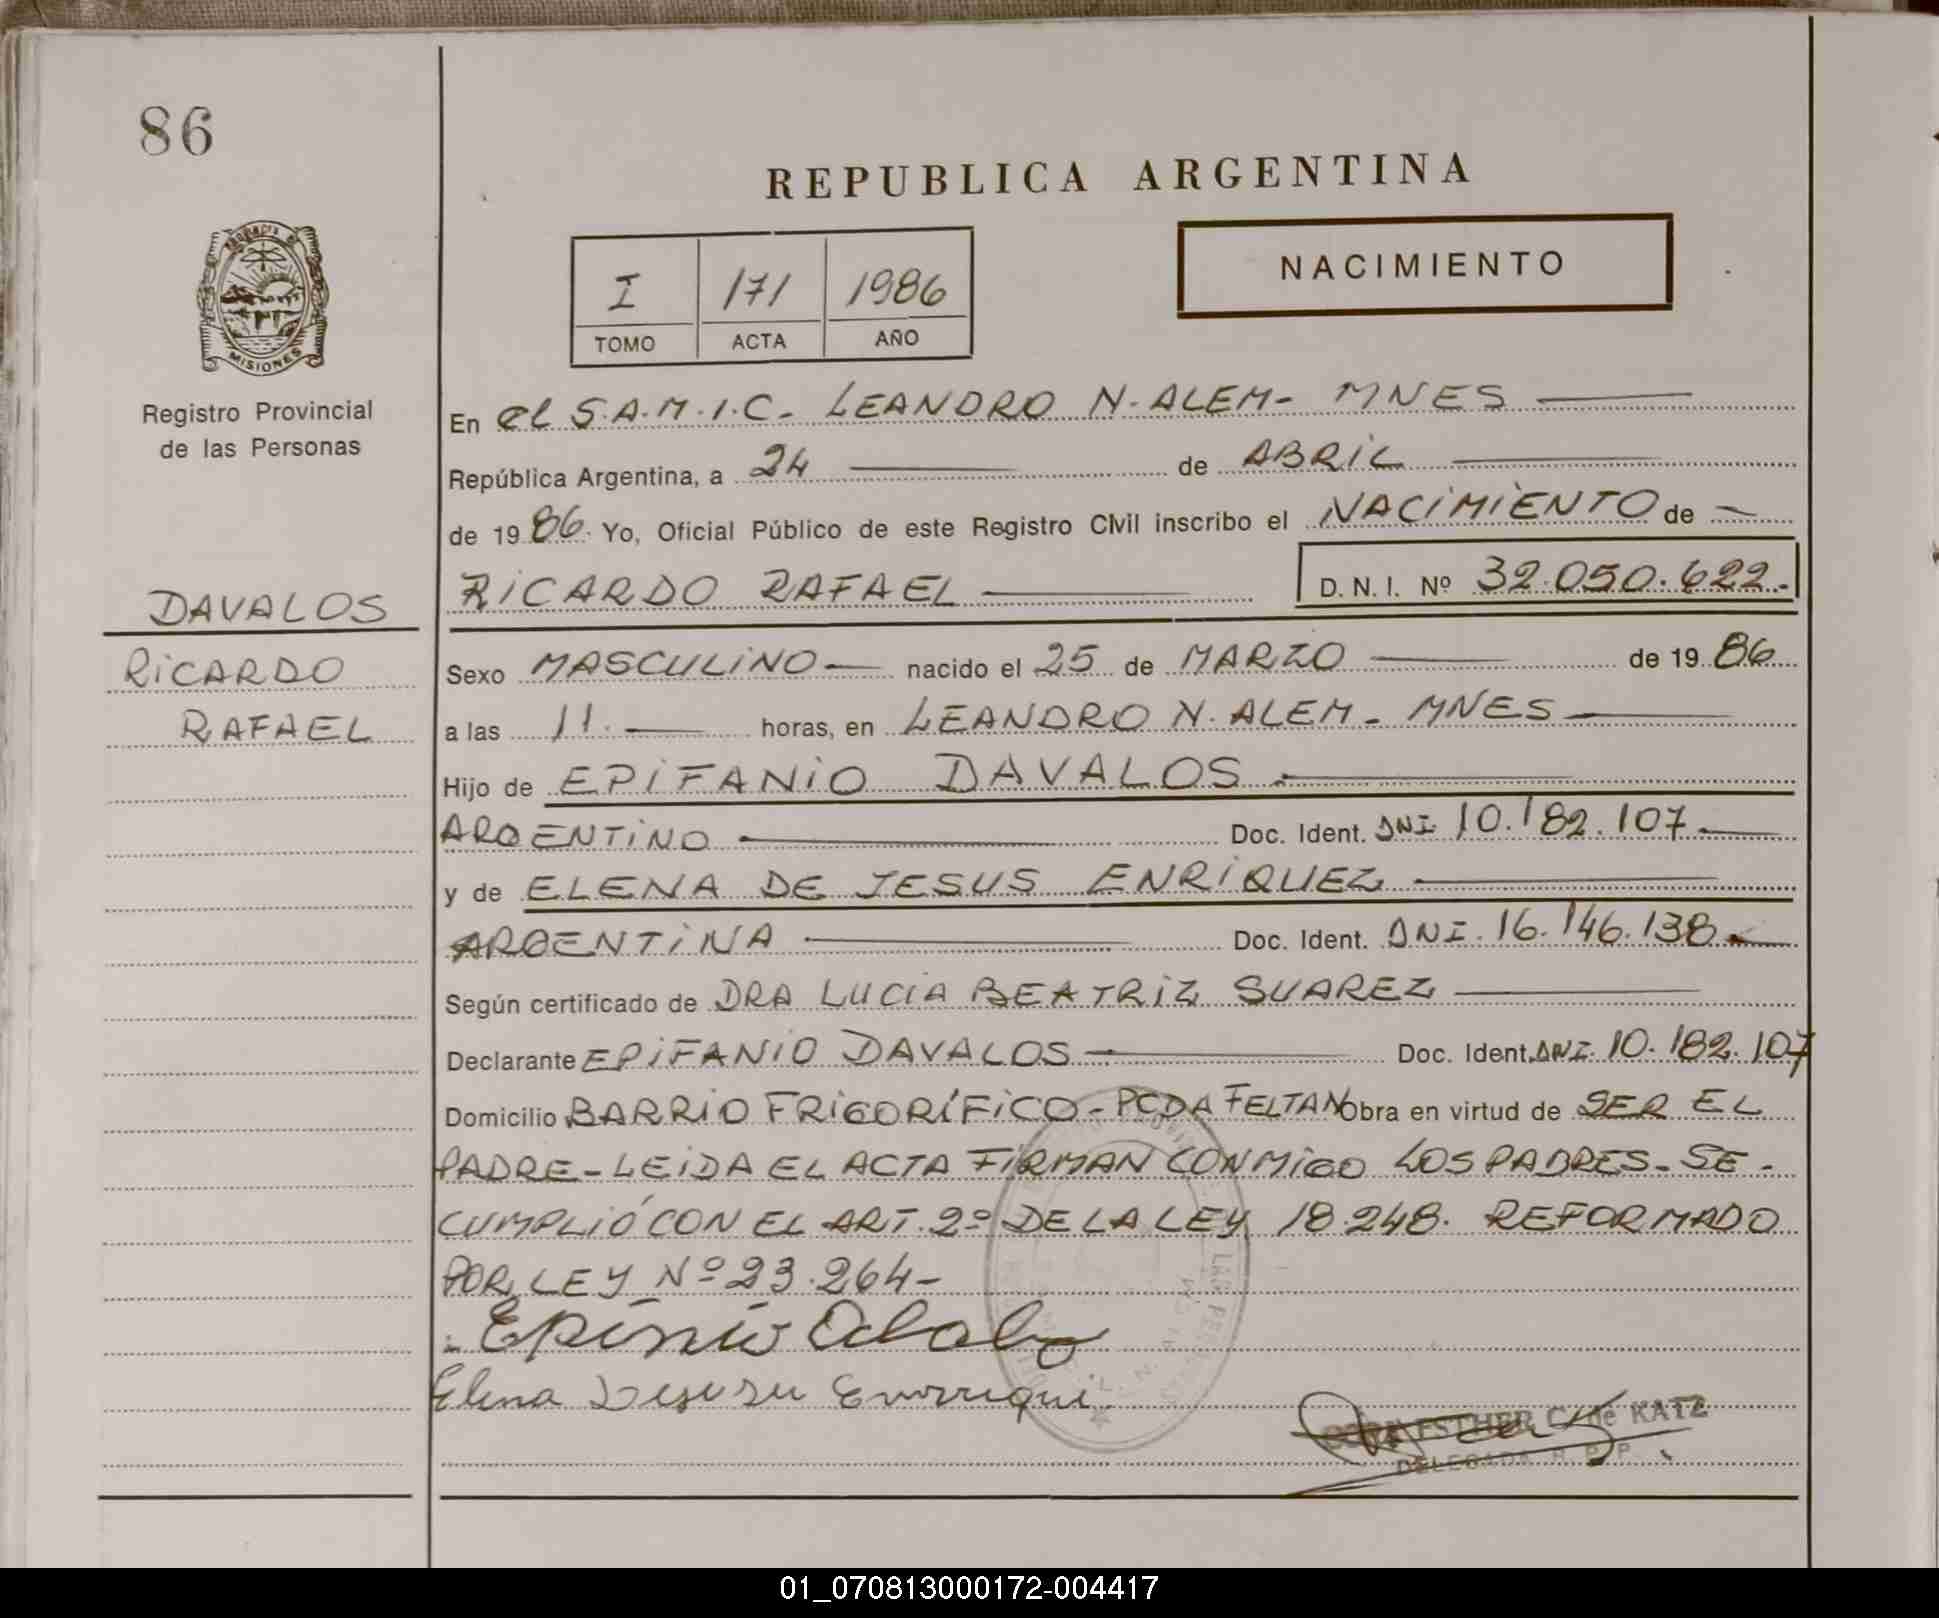 86
REPUBLICA ARGENTINA
NACIMIENTO
I 171 1986
TOMO ACTA AÑO
MISIONES
Registro Provincial
de las Personas
DAVALOS
RICARDO
RAFAEL
En el S.A.M.I.C. LEANDRO N. ALEM - MNES
República Argentina, a 24 de ABRIL
de 1986. Yo, Oficial Público de este Registro Civil inscribo el NACIMIENTO de
RICARDO RAFAEL D. N. I. Nº 32.050.622.-
Sexo MASCULINO nacido el 25 de MARZO de 1986
a las 11. horas, en LEANDRO N. ALEM - MNES
Hijo de EPIFANIO DAVALOS
ARGENTINO Doc. Ident. DNI 10.182.107
y de ELENA DE JESUS ENRIQUEZ
ARGENTINA Doc. Ident. DNI. 16.146.138
Según certificado de DRA LUCIA BEATRIZ SUAREZ
Declarante EPIFANIO DAVALOS Doc. Ident. DNI. 10.182.107
Domicilio BARRIO FRIGORÍFICO - PCDA FELTAN Obra en virtud de SER EL
PADRE - LEIDA EL ACTA FIRMAN CONMIGO LOS PADRES - SE
CUMPLIÓ CON EL ART. 2º DE LA LEY 18.248. REFORMADO
POR LEY Nº 23.264 -
Elena
ESTHER C. de KATZ
DELEGADA R. P. P.
01_070813000172-004417